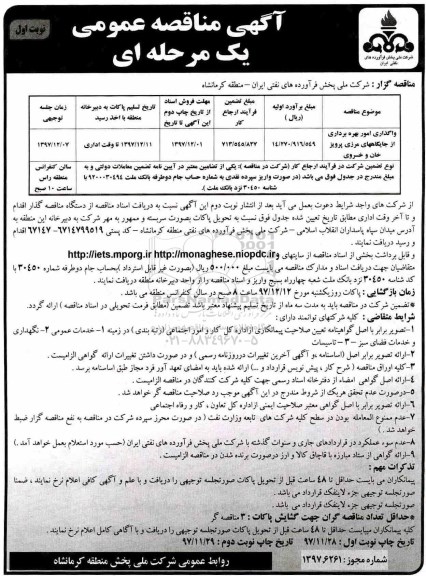 آگهی مناقصه عمومی
یک مرحله ای
نوبت اول
شرکت ملی پخش فرآورده های نفتی ایران
مناقصه گزار : شرکت ملی پخش فرآورده های نفتی ایران – منطقه کرمانشاه
موضوع مناقصه
مبلغ برآورد اولیه (ریال)
مبلغ تضمین فرآیند ارجاع کار
مهلت فروش اسناد از تاریخ چاپ دوم این آگهی تا تاریخ
تاریخ تسلیم پاکات به دبیرخانه منطقه با اخذ رسید
زمان جلسه توجیهی
واگذاری امور بهره برداری از جایگاههای مرزی پرویز خان و خسروی
۱۴/۲۷۰/۹۱۶/۵۴۹
۷۱۳/۵۴۵/۸۲۷
۱۳۹۷/۱۲/۰۱
۱۳۹۷/۱۲/۱۱ تا وقت اداری
۱۳۹۷/۱۲/۰۷
نوع تضمین شرکت در فرآیند ارجاع کار (شرکت در مناقصه): یکی از تضامین معتبر در آیین نامه تضمین معاملات دولتی و به
مبلغ مندرج در جدول فوق می باشد (در صورت واریز سپرده نقدی به شماره حساب جام دوطرفه بانک ملت ۹۲۰۰۰۳۰۴۹۴ با
شناسه ۳۰۴۵۰ نزد بانک ملت).
سالن کنفرانس منطقه راس ساعت ۱۰ صبح
از شرکت های واجد شرایط دعوت بعمل می آید بعد از انتشار نوبت دوم این آگهی نسبت به دریافت اسناد مناقصه از دستگاه مناقصه گذار اقدام
و تا آخر وقت اداری مطابق تاریخ تعیین شده جدول فوق نسبت به تحویل پاکات بصورت سربسته و ممهور به مهر شرکت به دبیرخانه این منطقه به
آدرس میدان سپاه پاسداران انقلاب اسلامی – شرکت ملی پخش فرآورده های نفتی منطقه کرمانشاه – کد پستی ۶۷۱۴۷۹۹۵۱۹ – ۶۷۱۴۷ اقدام
و رسید دریافت نمایند.
و قابل برداشت بخشی از اسناد مناقصه از سایتهای http://iets.mporg.ir http://monaghese.niopdc.ir
متقاضیان جهت دریافت اسناد و مدارک مناقصه می بایست مبلغ ۵۰۰/۰۰۰ ریال (بصورت غیر قابل استرداد) بحساب جام دوطرفه شماره ۳۰۴۵۰ با
کد شناسه ۳۰۴۵۰ نزد بانک ملت شعبه چهارراه بسیج واریز و اسناد مناقصه را از واحد دبیرخانه منطقه دریافت نمایند.
زمان بازگشایی : پاکات روز یکشنبه مورخ ۹۷/۱۲/۱۲ ساعت ۸ صبح در سالن کنفرانس منطقه می باشد.
*تضمین شرکت در مناقصه باید به مدت سه ماه از تاریخ تسلیم پیشنهاد معتبر باشد تضمین (مطابق فرمت تحویلی در اسناد مناقصه) ارائه گردد.
شرایط متقاضی : کلیه شرکتهای توانمند دارای :
۱-تصویر برابر با اصل گواهینامه تعیین صلاحیت پیمانکاری ازاداره کل کار و امور اجتماعی (رتبه بندی) در زمینه ۱- خدمات عمومی ۲- نگهداری
و خدمات فضای سبز ۳- تاسیسات
۲-ارائه تصویر برابر اصل (اساسنامه ،و آگهی آخرین تغییرات درروزنامه رسمی) و در صورت داشتن تغییرات ارائه گواهی الزامیست.
۳-کلیه اوراق مناقصه (شرح کار ، پیش نویس قرارداد و ...) ارائه شده باید به امضای تعهد آور فرد مجاز طبق اساسنامه برسد.
۴-ارائه اصل گواهی امضاء از دفترخانه اسناد رسمی جهت کلیه شرکت کنندگان در مناقصه الزامیست.
۵-درصورت عدم تحقق هریک از شروط مندرج در این آگهی موجب رد صلاحیت مناقصه گر خواهد شد.
۶-ارائه تصویر برابر با اصل گواهی معتبر صلاحیت ایمنی ازاداره کل تعاون ، کار و رفاه اجتماعی
۷-عدم ممنوع المعامله بودن در سطح کلیه شرکت های تابعه وزارت نفت (در صورت محرز سپرده شرکت در مناقصه به نفع مناقصه گزار ضبط
خواهد شد.)
۸-عدم سوء عملکرد در قراردادهای جاری و سنوات گذشته با شرکت ملی پخش فرآورده های نفتی ایران (حسب مورد استعلام بعمل خواهد آمد.)
۹-ارائه گواهی از ستاد مبارزه با قاچاق کالا و ارز درصورت برنده شدن در مناقصه الزامیست.
تذکرات مهم :
پیمانکاران می بایست حداقل تا ۴۸ ساعت قبل از تحویل پاکات صورتجلسه توجیهی را دریافت و با علم و آگهی کافی اعلام نرخ نمایند ، ضمنا
صورتجلسه توجیهی جزء لاینفک قرارداد می باشد.
صورتجلسه توجیهی جزء لاینفک قرارداد می باشد.
*حداقل تعداد مناقصه گران جهت گشایش پاکات : ۳ مناقصه گر
کلیه پیمانکاران میبایست حداقل تا ۴۸ ساعت قبل از تحویل پاکات صورتجلسه توجیهی را دریافت و با آگاهی کامل اعلام نرخ نمایند.
تاریخ چاپ نوبت اول : ۹۷/۱۱/۲۸ تاریخ چاپ نوبت دوم : ۹۷/۱۱/۲۹
شماره مجوز : ۱۳۹۷.۶۲۶۱
روابط عمومی شرکت ملی پخش منطقه کرمانشاه
۰۲۱-۸۸۳۴۹۶۷۰-۵